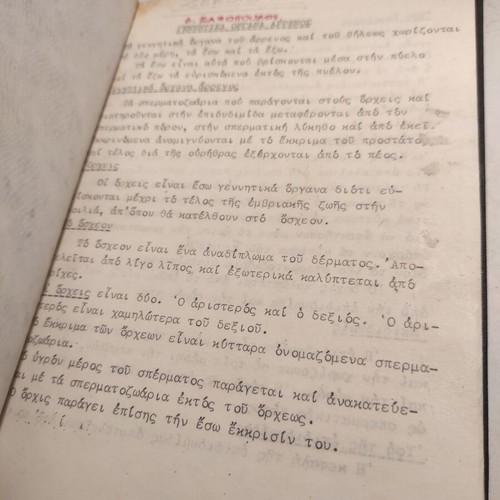 Α. ΣΑΦΟΠΟΥΛΟΥ
γεννητικά ὄργανα τοῦ ἄρρενος καί τοῦ θήλεος χωρίζονται
μέρη, τά ἔσω καί τά ἔξω.
Τά ἔσω εἶναι αὐτά πού βρίσκονται μέσα στήν πύελο
τά ἔξω τά εὑρισκόμενα ἐκτός τῆς πυέλου.
ὄργανα ἄρρενος
Τά σπερματοζωάρια πού παράγονται στούς ὄρχεις καί
στήν ἐπιδυδιμίδα μεταφέρονται ἀπό τόν
πόρον, στήν σπερματική λύκηθο καί ἀπό ἐκεῖ
ἀναμιγνύονται μέ τό ἔκκριμα τοῦ προστάτο
καί τέλος διά τῆς οὐρήθρας ἐξέρχονται ἀπό τό πέος.
Οἱ ὄρχεις εἶναι ἔσω γεννητικά ὄργανα διότι εὑ-
ρίσκονται μέχρι τό τέλος τῆς ἐμβριακῆς ζωῆς στήν
κοιλιά, ἀπ'ὅπου θά κατέλθουν στό ὄσχεον.
Τό ὄσχεον
Τό ὄσχεον εἶναι ἕνα ἀναδίπλωμα τοῦ δέρματος. Ἀπο-
τελεῖται ἀπό λίγο λῖπος καί ἐξωτερικά καλύπτεται ἀπό
τρίχες.
Οἱ ὄρχεις εἶναι δύο. Ὁ ἀριστερός καί ὁ δεξιός. Ὁ ἀρι-
στερός εἶναι χαμηλώτερα τοῦ δεξιοῦ.
Τό ἔκκριμα τῶν ὄρχεων εἶναι κύτταρα ὀνομαζόμενα σπερμα-
τοζωάρια.
Τό ὑγρόν μέρος τοῦ σπέρματος παράγεται καί ἀνακατεύε-
ται μέ τά σπερματοζωάρια ἐκτός τοῦ ὄρχεως.
Ὁ ὄρχις παράγει ἐπίσης τήν ἔσω ἔκκρισίν του.